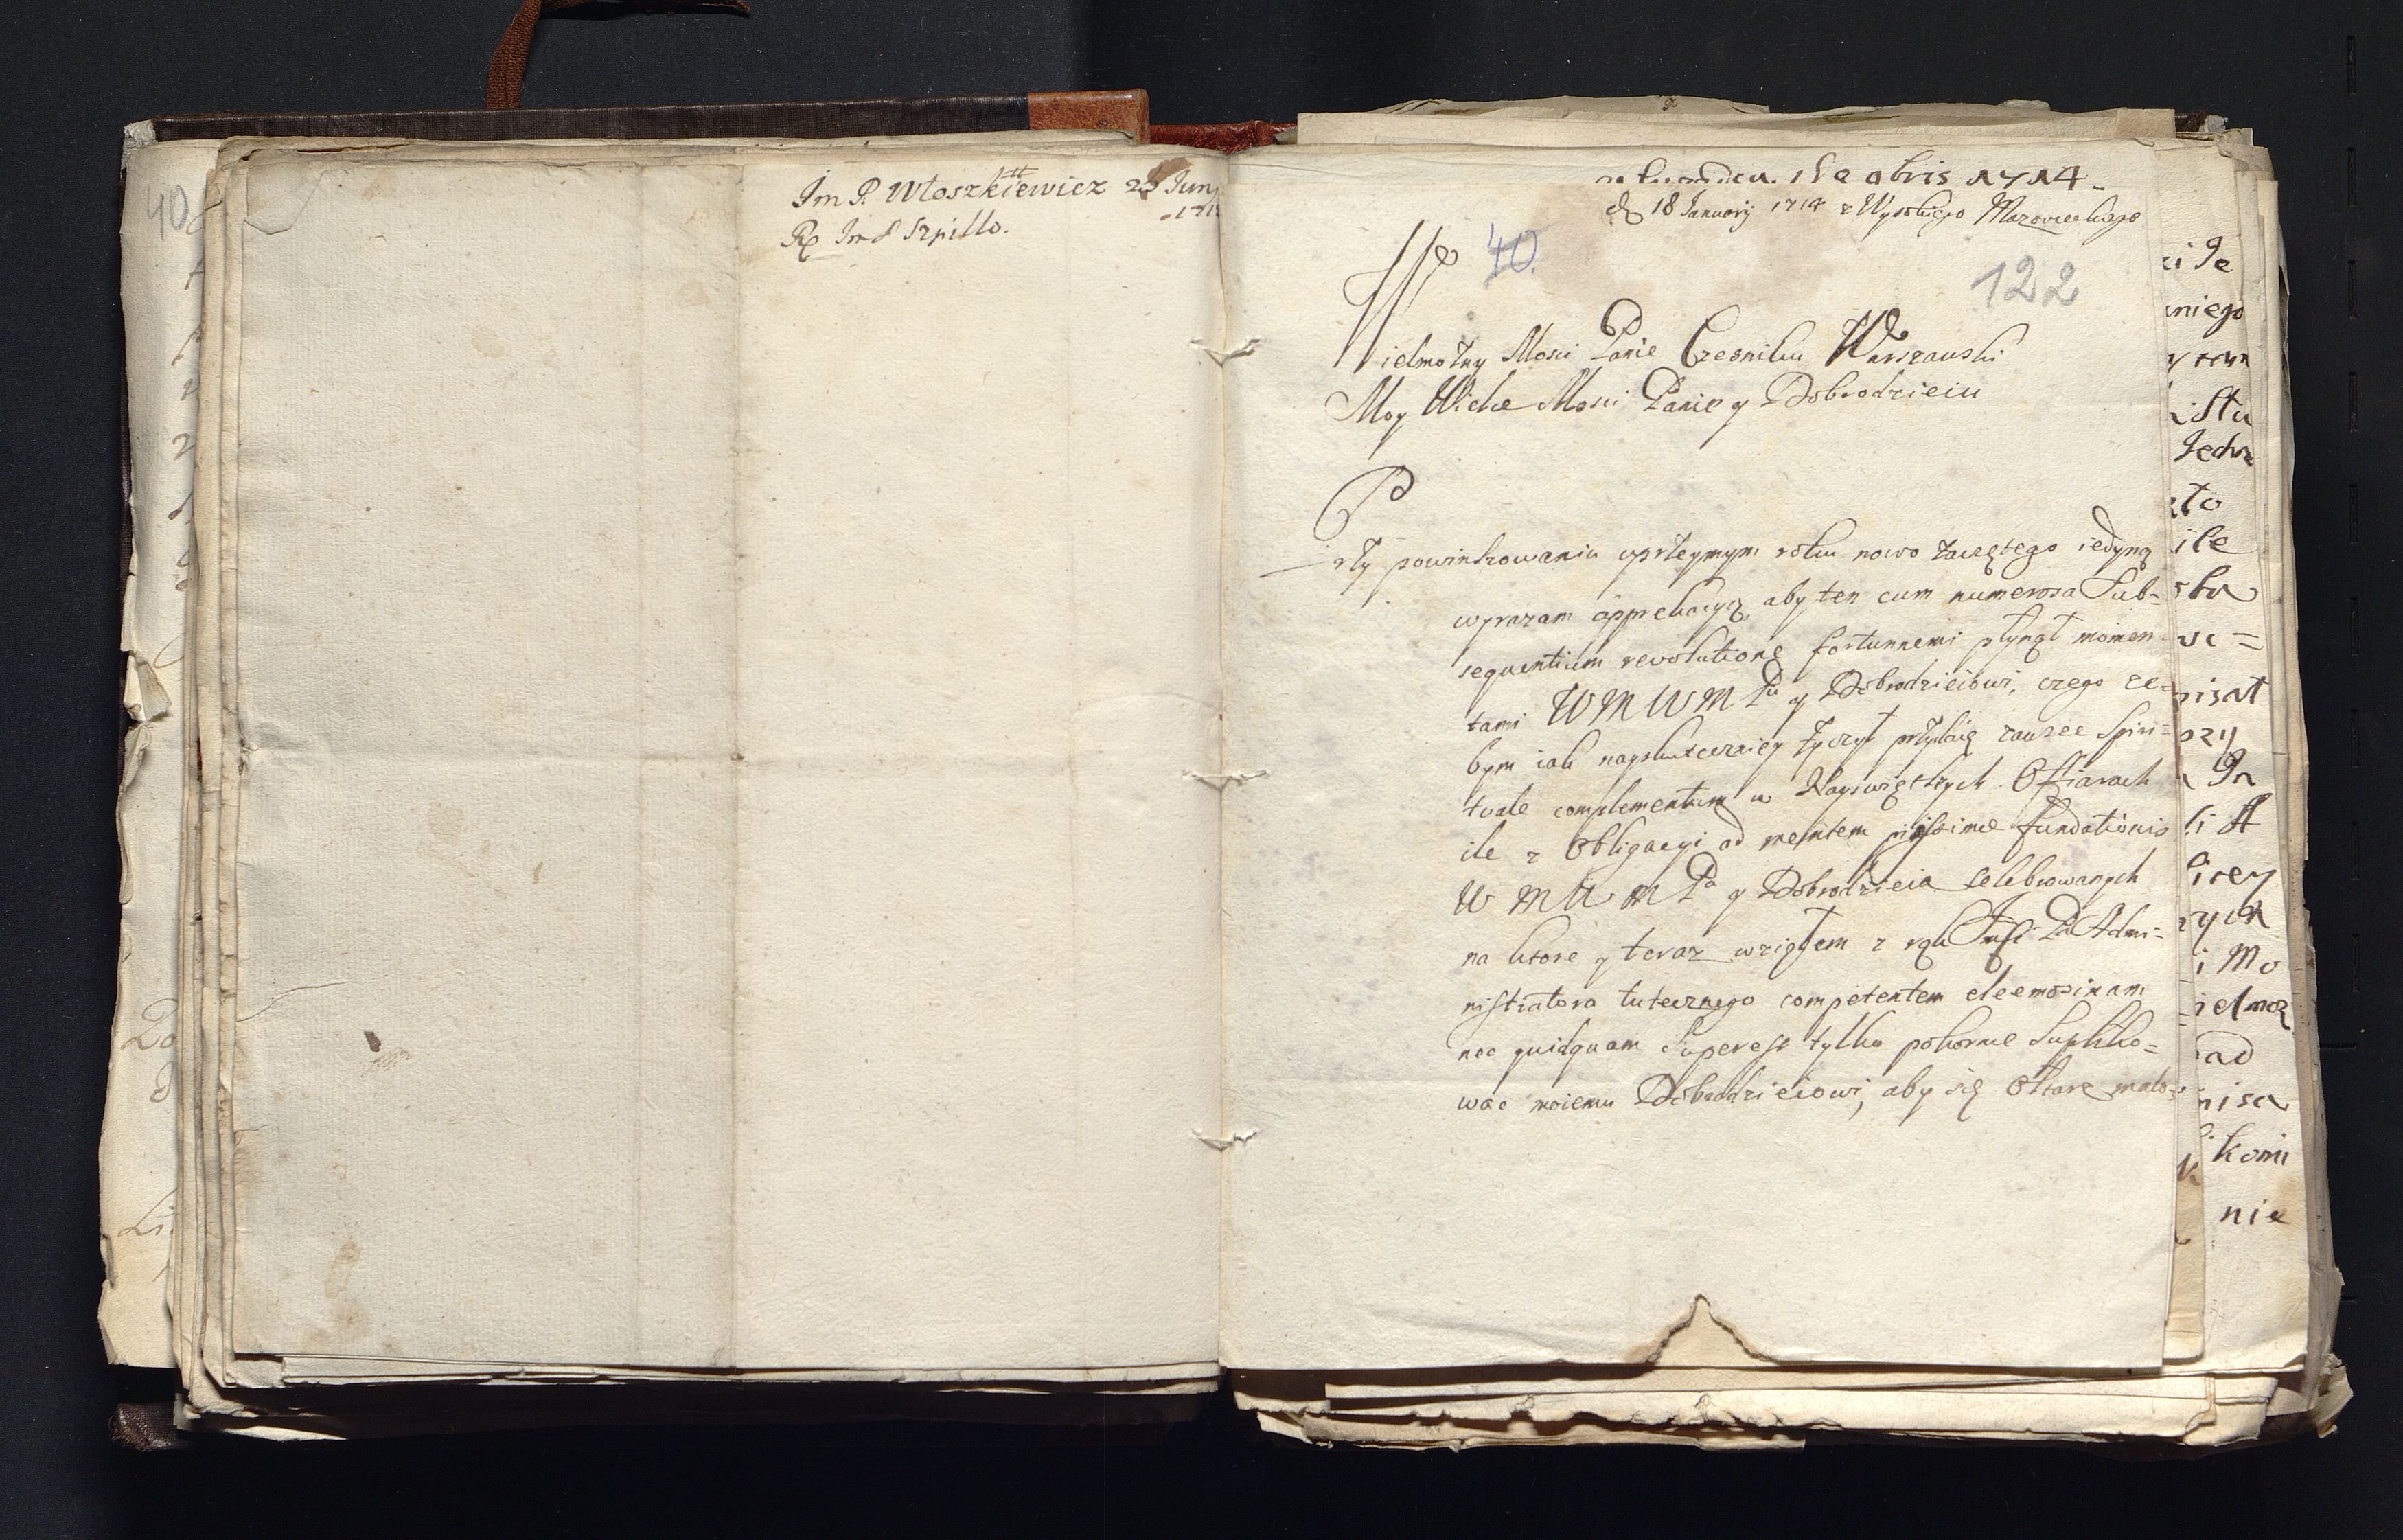 40
Im P. Włoszkiewicz 23 Juny
171
Rx Im P Szpillo.
8bris 1714
d 18 January 1714 z Wysokiego Mazowieckiego
40.
122
Wielmożny Mosci Panie Czesniku Warszawski
Moy Wielce Mosci Panie y Dobrodzieiu
Przy powinszowaniu uprzeymym roku nowo zaczętego iedyną
wyrazam apprekacyą, aby ten cum numerosa Sub=
sequentium revolutione fortunnemi płynąt momen
tami W M W M Pu y Dobrodzieiowi, czego ze=
bym iak nayskuteczniey życzył przyłącię zawsze Spiri=
tuale complementum w Nayświętszych Offiarach
ile z Obligacyi ad mentem piissimæ fundationis
W M W M Pa y Dobrodzieia Celebrowanych
na ktore y teraz wziąłem z rąk Pa Admi=
nistratora tutecznego competentem eleemosinam
nec quidquam Superest tylko pokorne Suppliko=
wac moiemu Dobrodzieiowi, aby się Ołtarz malo=
ci Je
aniego
Jedn
ito
ile
pisał
ozy
licy
i Mo
ielmoz
ad
komi
nie